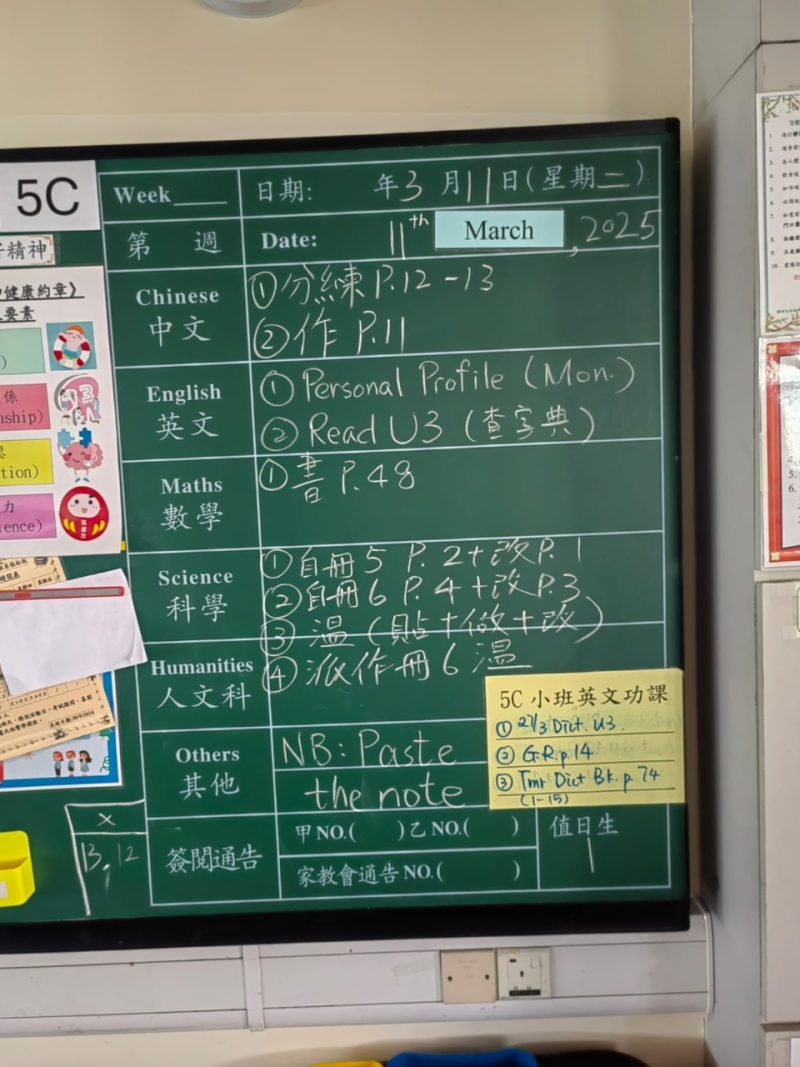 5C
Week
日期: 年3月11日(星期二)
第 週
Date: 11th March, 2025
Chinese
中文
①分練 P.12-13
②作 P.11
English
英文
① Personal Profile (Mon.)
② Read U3 (查字典)
Maths
數學
①書 P.48
Science
科學
①自冊5 P.2+改P.1
②自冊6 P.4+改P.3
③溫(貼+做+改)
Humanities
人文科
④派作冊6溫
Others
其他
NB: Paste
the note
5C 小班英文功課
① 27/3 Dict. U3.
② G.R p.14
③ Tmr Dict Bk. p.74
(1-15)
簽閱通告
甲NO.( )乙NO.( )
家教會通告NO.( )
值日生
1
X
13, 12
精神
健康約章》
要素
係
nship)
tion)
力
ience)